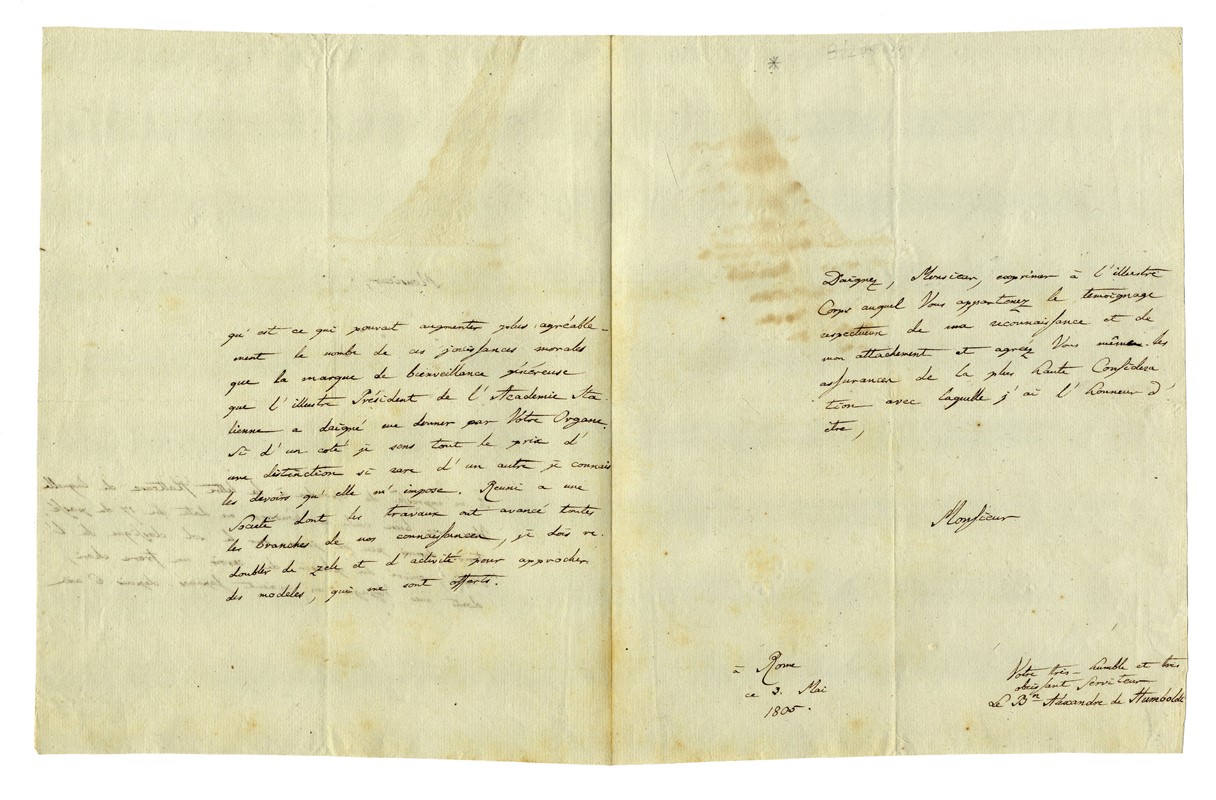 qu'est ce qui pouvait augmenter plus agréable-
ment le nombre de ces jouissances morales
que la marque de bienveillance généreuse
que l'illustre Président de l'Academie Ita
lienne a daigné me donner par Votre Organe.
Si d'un coté je sens tout le prix d'
une distinction si rare d'un autre je connais
les devoirs qu'elle m'impose. Reuni a une
Societé dont les travaux ont avancé toutes
les branches de nos connaissances, je dois re-
doubler de zele et d'activité pour approcher
des modeles, qui me sont offerts.
Daignez, Monsieur, exprimer à l'illustre
Corps auquel Vous appartenez le temoignage
respectueux de ma reconnaissance et de
mon attachement et agréez Vous même les
assurances de la plus haute Considera
tion avec laquelle j'ai l'honneur d'
etre,
Monsieur
à Rome
ce 3. Mai
1805.
Votre très-humble et très
obeissant Serviteur
Le Bn Alexandre de Humboldt